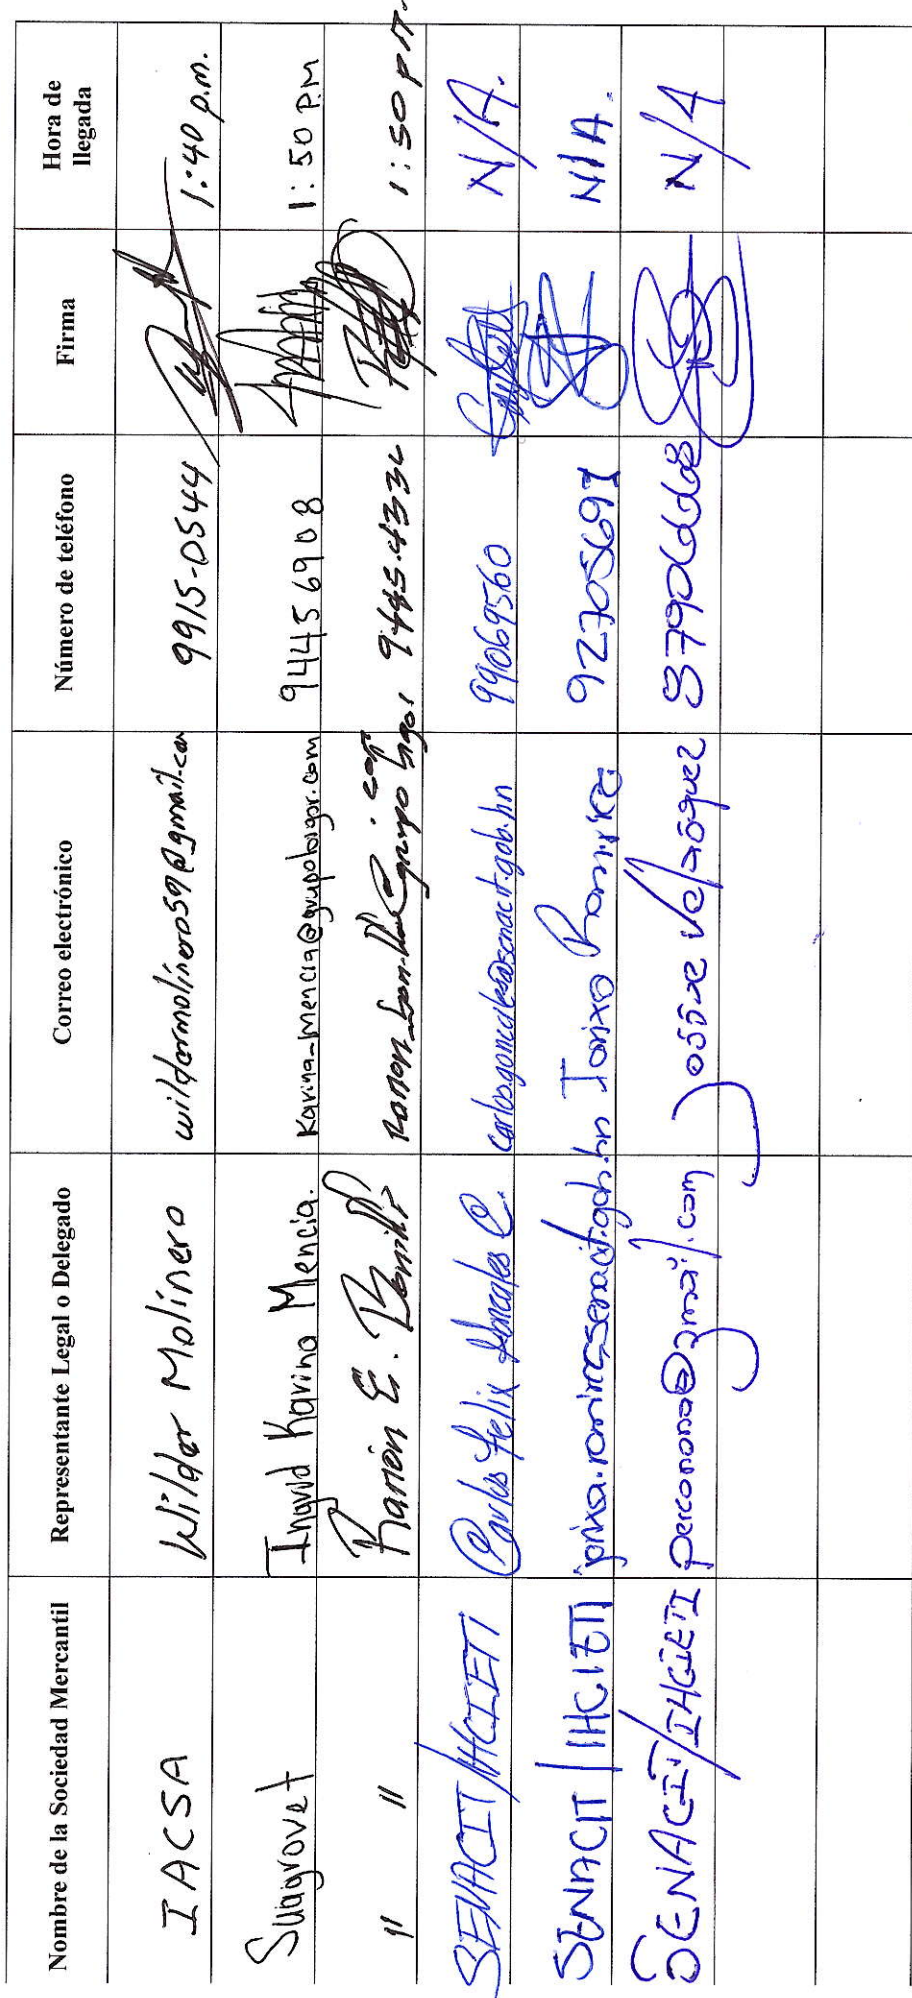 Nombre de la Sociedad Mercantil Representante Legal o Delegado Correo electrónico Número de teléfono Firma Hora de llegada
IACSA Wilder Molinero wildermolinero59@gmail.com 9915-0544 1:40 p.m.
Suagrovet Ingrid Karina Mencia. Karina_Mencia@grupobigor.com 94456908 1:50 P.M
" " Ramón E. Bonilla 9445.4332 1:50 P.M.
SENACIT/IHCIETI Carlos Felix Gonzales C. carlos.gonzales@senacit.gob.hn 99069560 N/A.
SENACIT/IHCIETI Jorixa Ramirez 92705697 N/A.
SENACIT/IHCIETI perconona@gmail.com Jossue Velasquez 87906668 N/A